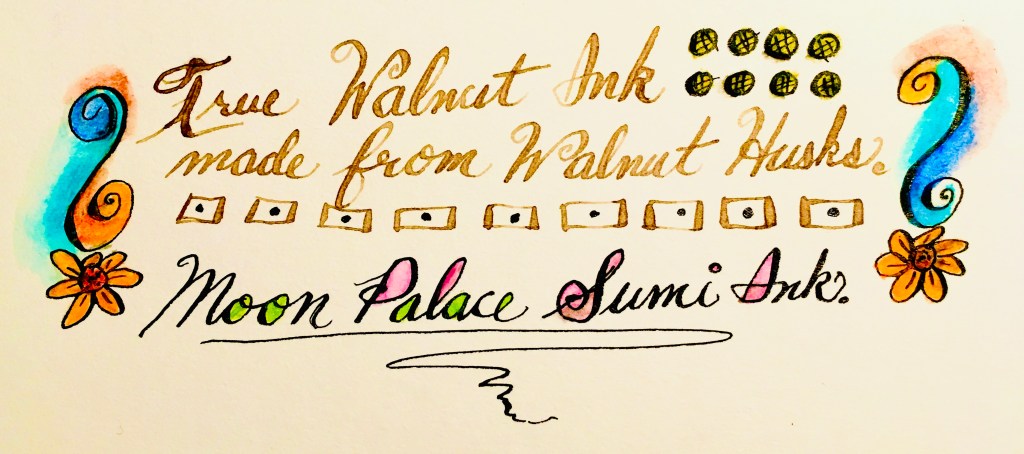 True Walnut Ink
made from Walnut Husks.
Moon Palace Sumi Ink.